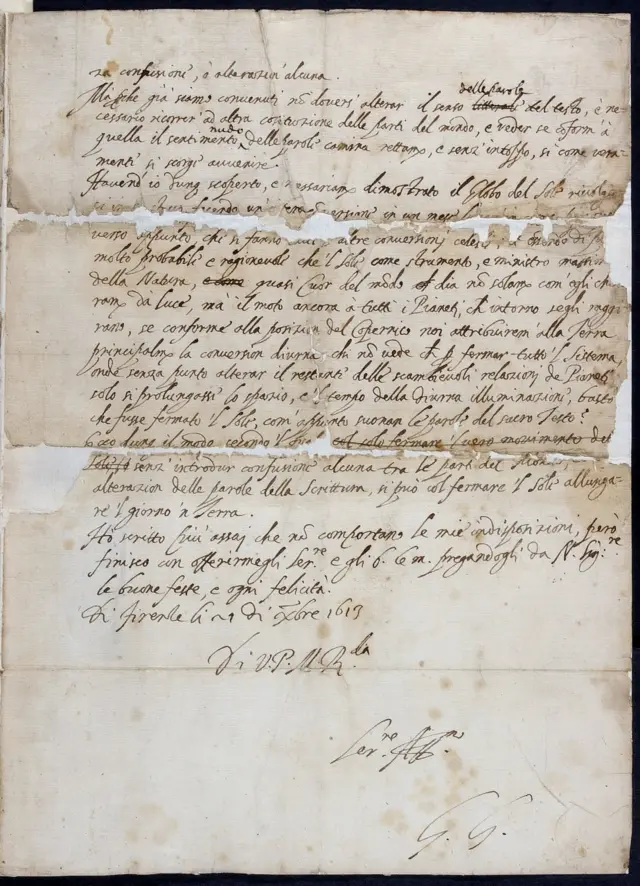 za confusione, ò alterazion' alcuna.
delle parole
Mà che già siamo convenuti nõ doversi alterar il senso litterale del testo, è ne-
cessario ricorrer ad altra costituzione delle parti del mondo, e veder se conform' à
nudo
quella il sentimento delle parole camina rettam.e, e senz' intoppo, si come vera-
menti si scorge avvenire.
Havend' io dunq scoperto, e necessariam.e dimostrato il Globo del Sole
in un mese
verso appunto, che si fanno altre conversioni celesti;
molto probabile e ragionevole che 'l Sole come strumento, e ministro massimo
della Natura, e come quasi Cuor del mõdo dia nõ solam.e com' egli chi-
ram.e dà luce, mà il moto ancora à tutti i Pianeti, ch' intorno se gli raggi-
rano, se conforme alla posizion del Copernico noi attribuirem' alla Terra
principalm.e la conversion diurna, chi nõ vede ch p fermar tutto 'l Sistema,
onde senza punto alterar il restante delle scambievoli relazioni de Pianeti
solo si prolungasse lo spazio, e 'l tempo della diurna illuminazione, bastò
che fusse fermato 'l Sole, com' appunto suonan le parole del sacro Testo?
Ecco dunq il modo secondo 'l qual col solo fermare 'l vero movimento del
sole senz' introdur confusione alcuna tra le parti del Mon
alterazion delle parole della Scrittura, si può col fermare 'l Sole allunga-
re 'l giorno 'n Terra.
Hò scritto più assai che nõ comportano le mie indisposizioni, però
finisco con offerirmegli Ser.re e gli b. le m. pregandogli da N. Sig.re
le buone feste, e ogni felicità.
Di Firenze li 21 di Xbre 1613
Di V.P.M.R.da
Ser.re Aff.mo
G. G.